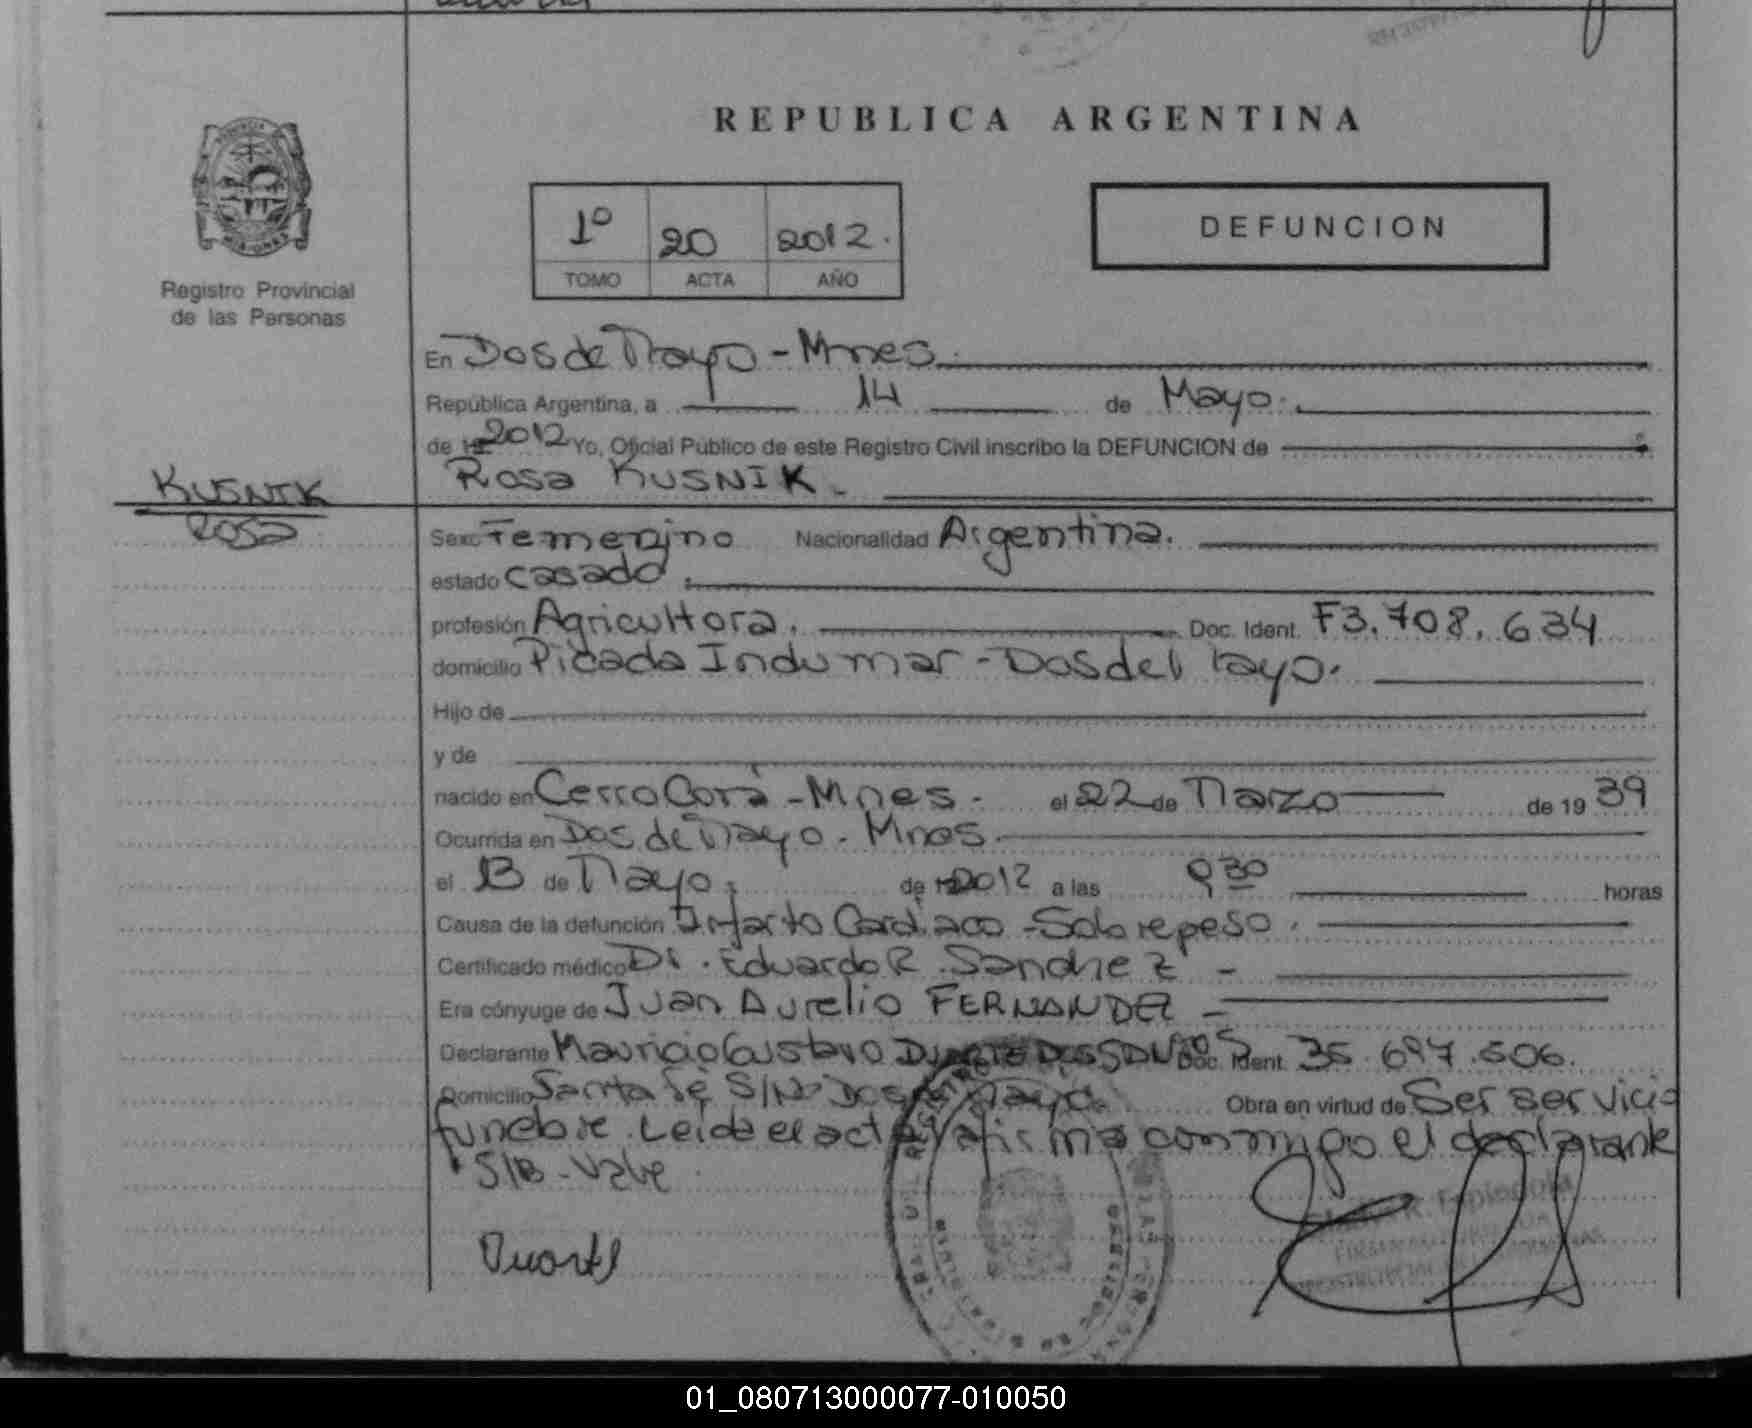 REPUBLICA ARGENTINA
1º 20 2012.
TOMO ACTA AÑO
DEFUNCION
Registro Provincial
de las Personas
En Dos de Mayo - Mnes.
República Argentina, a 14 de Mayo.
de 2012 Yo, Oficial Público de este Registro Civil inscribo la DEFUNCION de
Rosa KUSNIK.
KUSNIK
Rosa
Sexo Femenino Nacionalidad Argentina.
estado casado.
profesión Agricultora. Doc. Ident. F3.708.634
domicilio Picada Indumar - Dos de Mayo.
Hijo de
y de
nacido en Cerro Corá - Mnes. el 22 de Marzo de 19 39
Ocurrida en Dos de Mayo. Mnes.
el 13 de Mayo. de 2012 a las 9,30 horas
Causa de la defunción Infarto Cardiaco - Sobrepeso.
Certificado médico Dr. Eduardo R. Sanchez -
Era cónyuge de Juan Aurelio FERNANDEZ -
Declarante Mauricio Gustavo Doc. Ident. 35.697.506.
Domicilio Santa Fé S/Nº Dos de Mayo. Obra en virtud de Ser servicio
funebre. Leida el acta, firma conmigo el declarante
S/B - Vale
Duarte
01_080713000077-010050